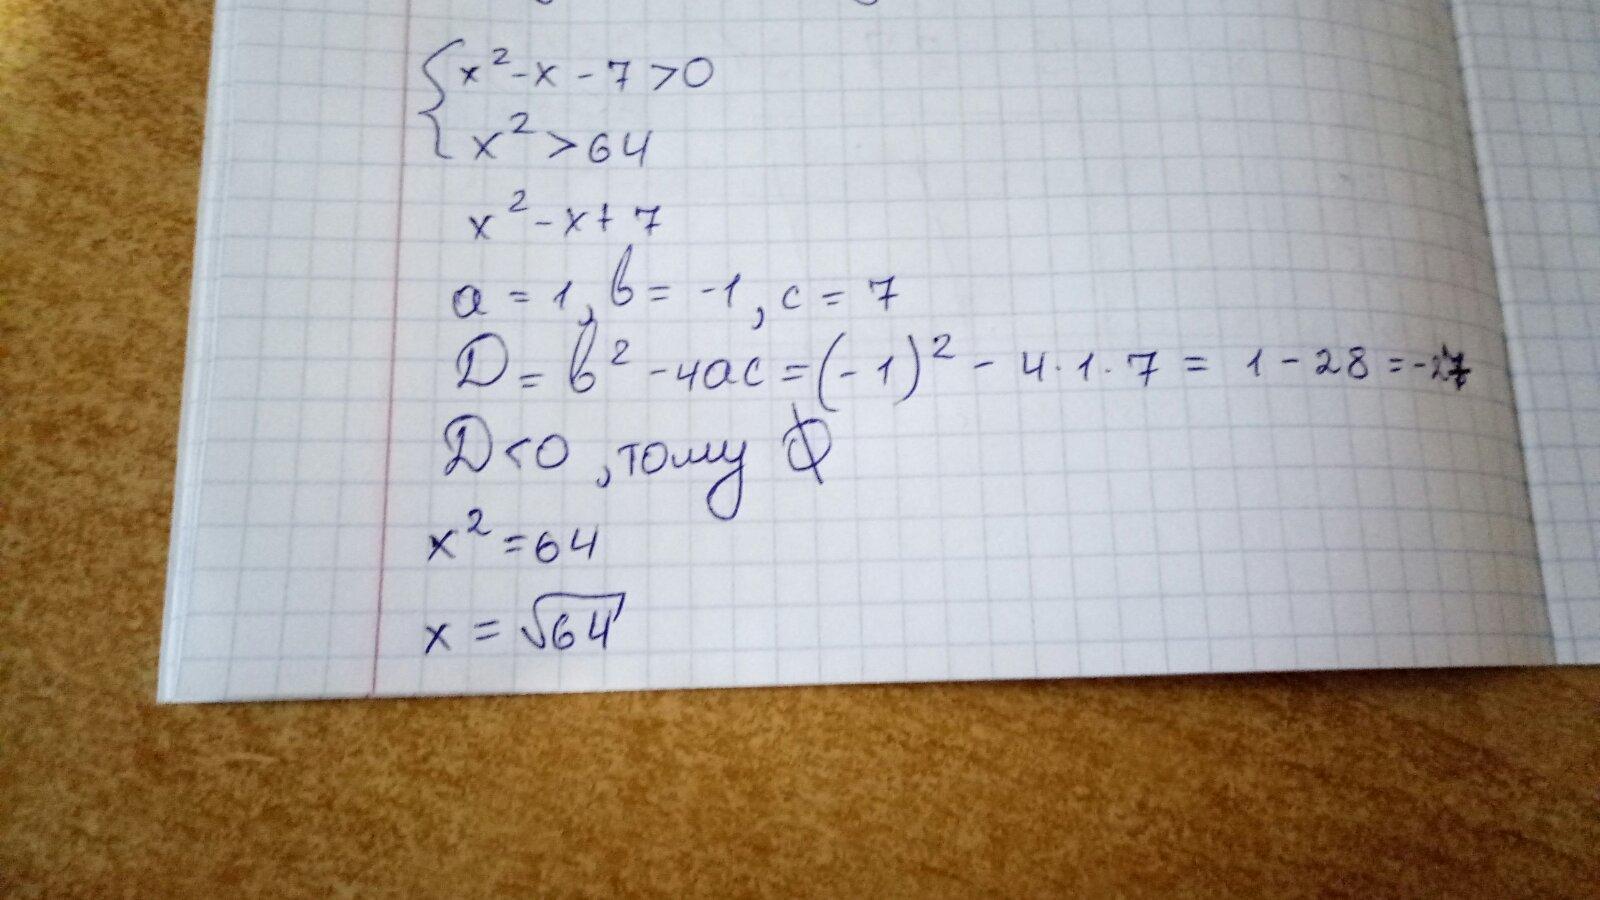 { x² - x - 7 > 0
x² > 64
x² - x + 7
a = 1, b = -1, c = 7
D = b² - 4ac = (-1)² - 4·1·7 = 1 - 28 = -27
D < 0, тому ∅
x² = 64
x = √64